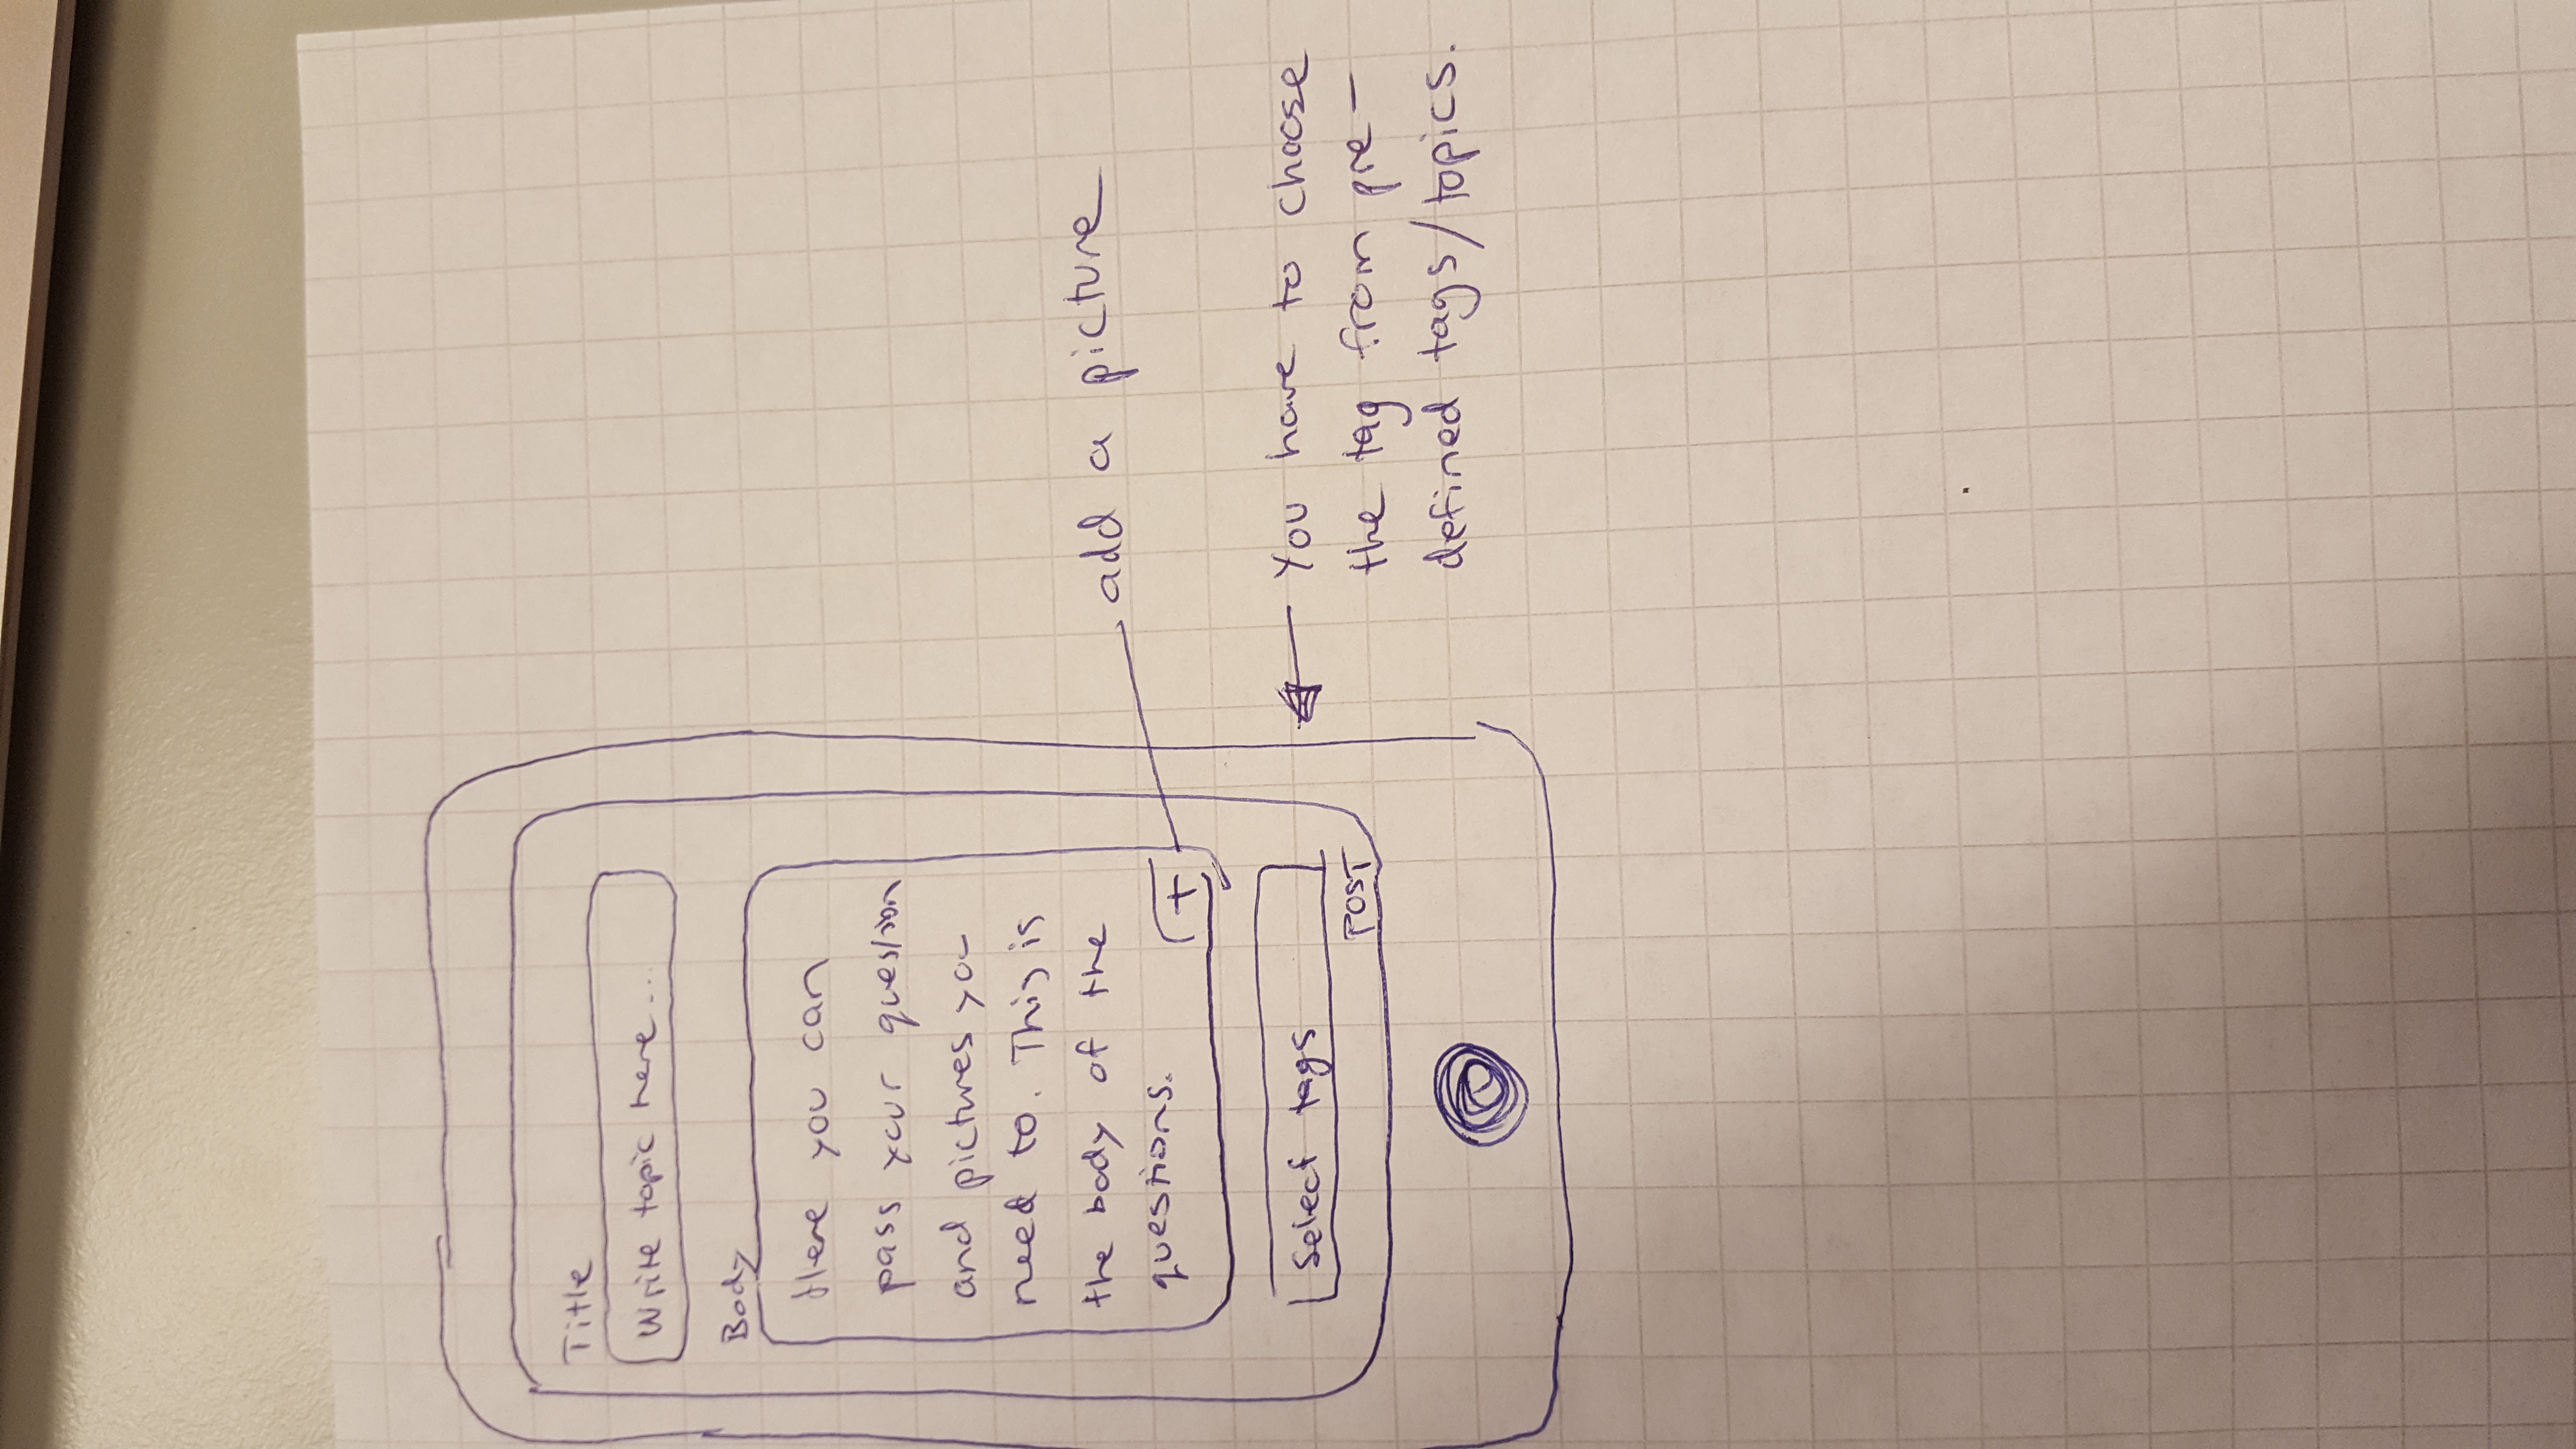 Title
Write topic here...
Body
Here you can
pass your question
and pictures you
need to. This is
the body of the
questions.
+
add a picture
Select tags
POST
You have to choose
the tag from pre-
defined tags/topics.